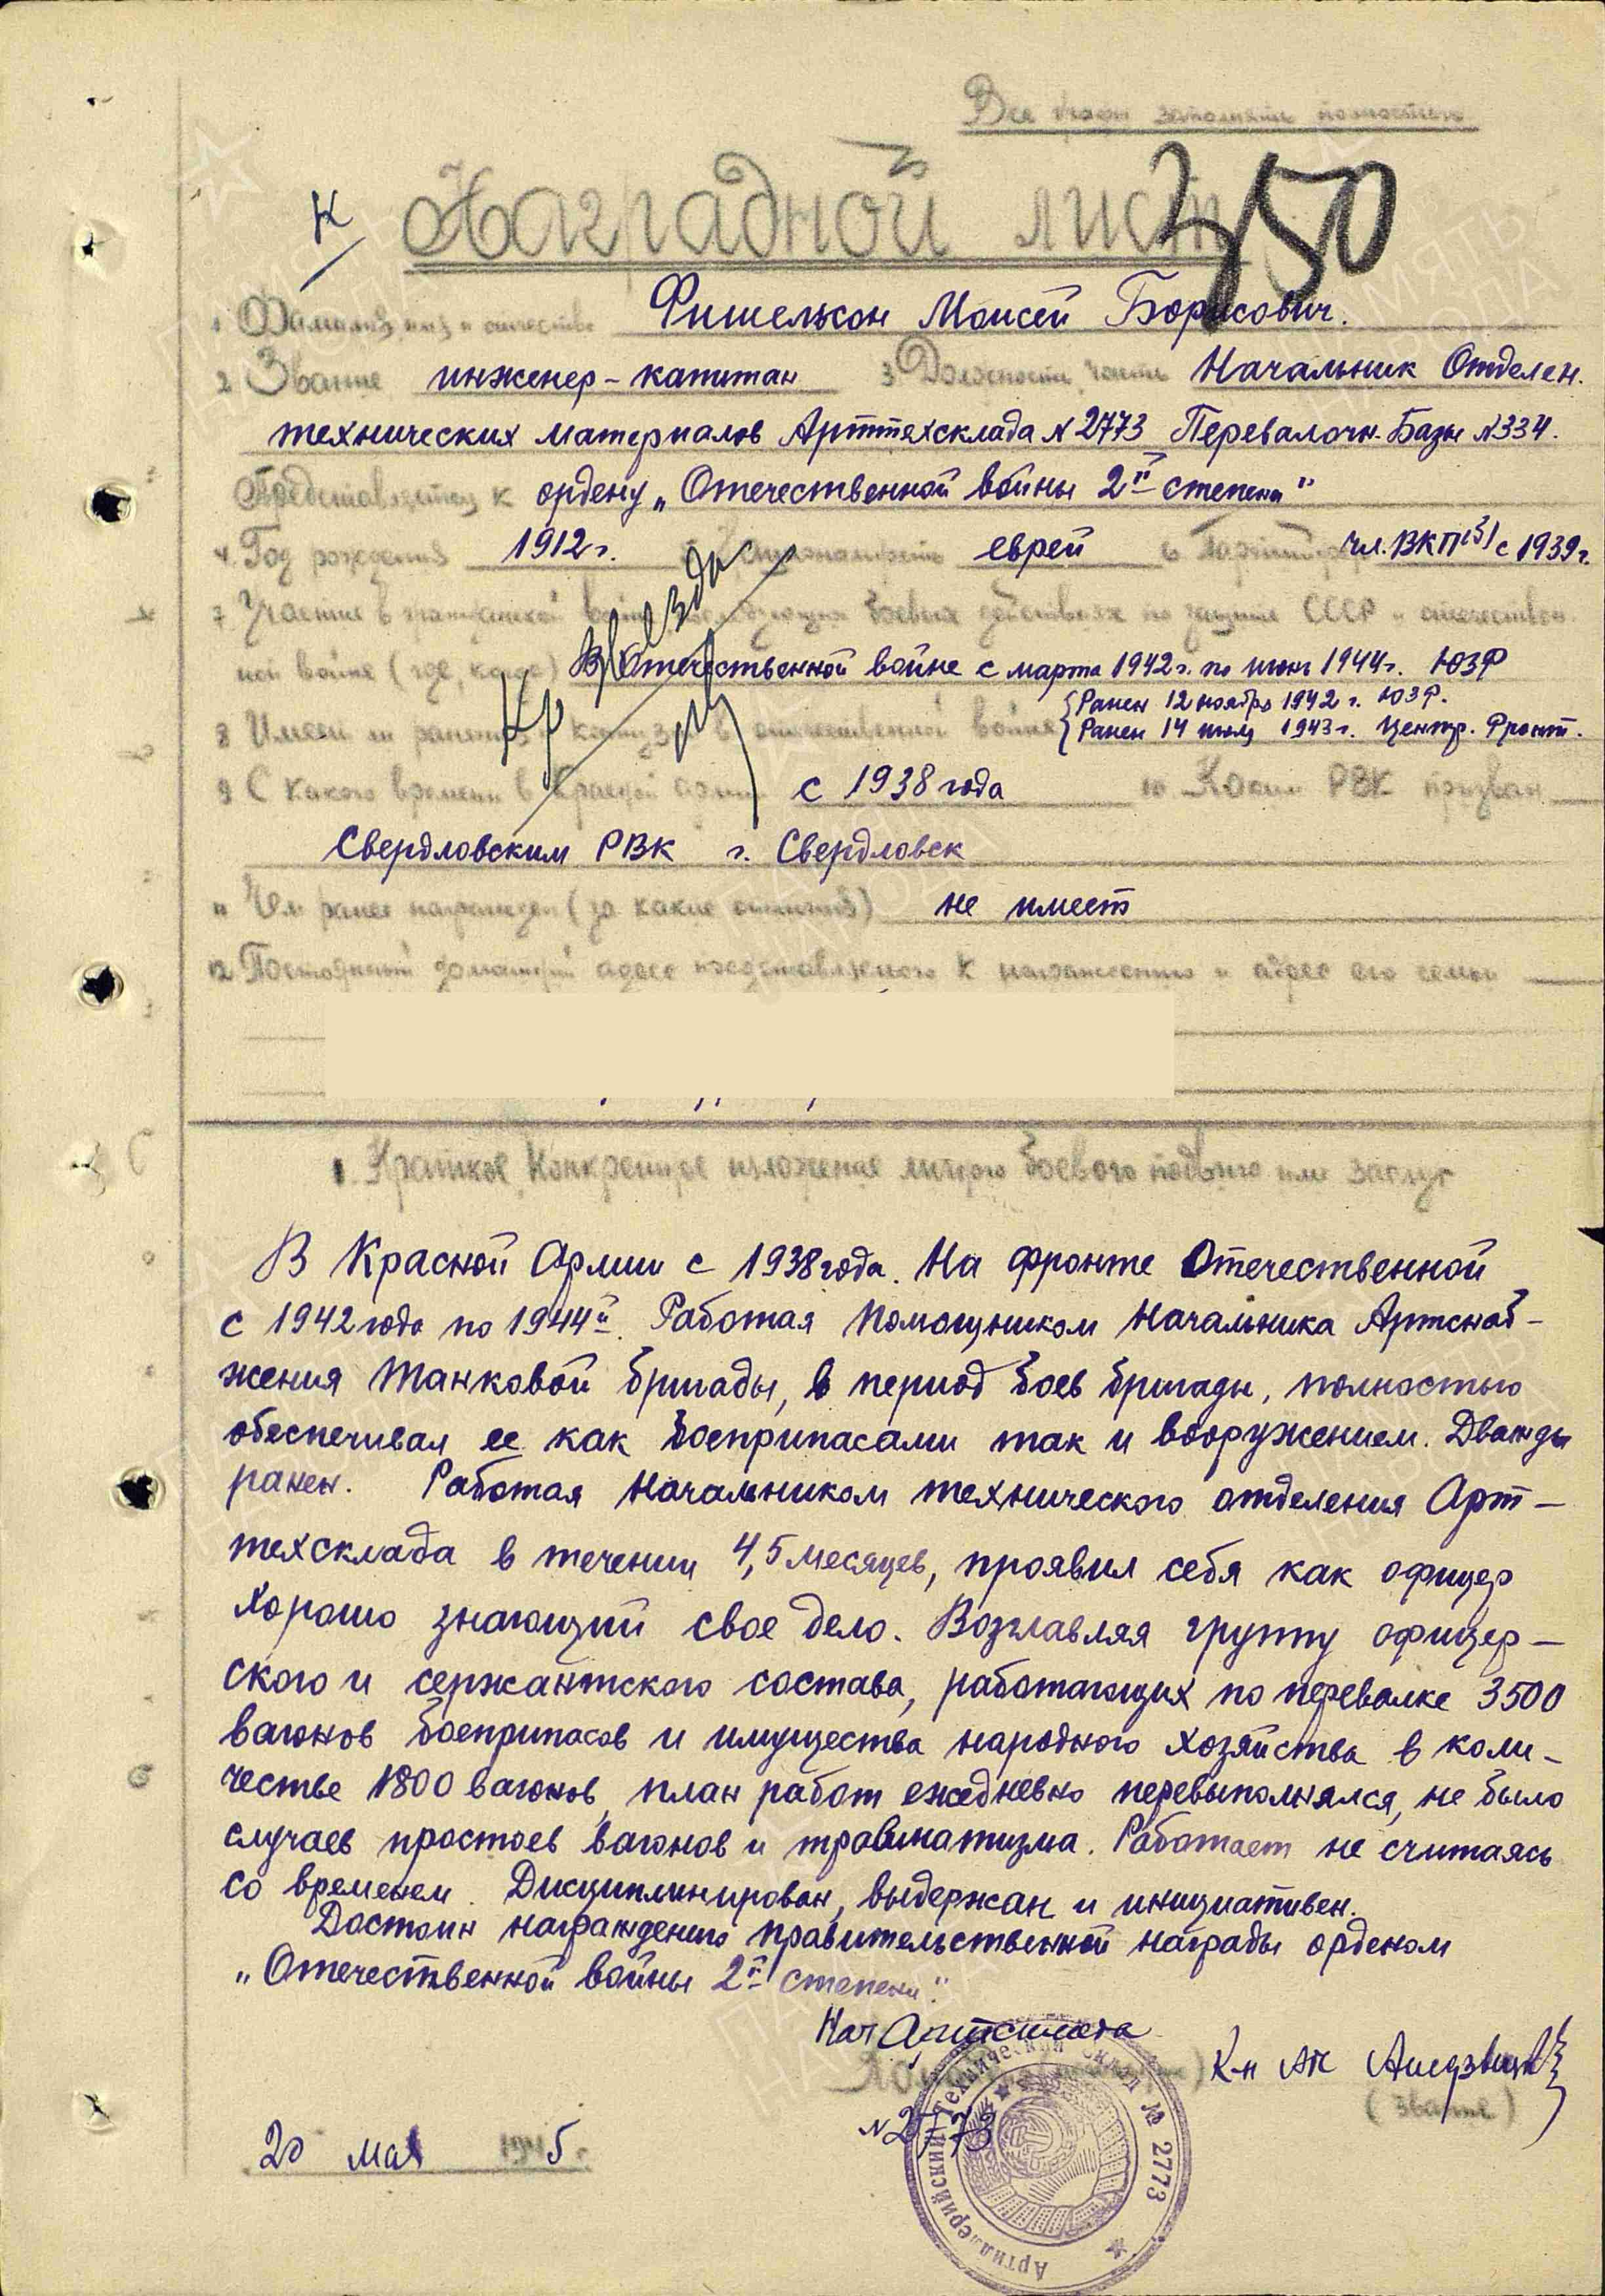 Все графы заполнять полностью
К
Наградной лист
350
1 Фамилия, имя и отчество Фишельсон Моисей Борисович.
2 Звание инженер-капитан 3 Должность, часть Начальник Отделен.
технических материалов Арттехсклада N 2773 Перевалочн. Базы N 334.
Представляется к ордену „Отечественной войны 2й степени"
4. Год рождения 1912 г. 5 Национальность еврей 6 Партийн чл. ВКП(б) с 1939 г.
7 Участие в гражданской войне, последующих боевых действиях по защите СССР и отечествен-
ной войне (где, когда) В Отечественной войне с марта 1942 г. по июнь 1944 г. ЮЗФ
Кр Звезда
{Ранен 12 ноября 1942 г. ЮЗФ.
8 Имеет ли ранения и контузии в отечественной войне {Ранен 14 июля 1943 г. Центр. Фронт.
9 С какого времени в Красной армии с 1938 года 10 Каким РВК призван
Свердловским РВК г. Свердловск
11 Чем ранее награжден (за какие отличия) не имеет
12 Постоянный домашний адрес представляемого к награждению и адрес его семьи
1. Краткое, конкретное изложение личного боевого подвига или заслуг
В Красной Армии с 1938 года. На фронте Отечественной
с 1942 года по 1944й. Работая Помощником Начальника Артснаб-
жения Танковой бригады, в период боев бригады, полностью
обеспечивал ее как боеприпасами так и вооружением. Дважды
ранен. Работая Начальником технического отделения Арт-
техсклада в течении 4,5 месяцев, проявил себя как офицер
хорошо знающий свое дело. Возглавляя группу офицер-
ского и сержантского состава, работающих по перевалке 3500
вагонов боеприпасов и имущества народного хозяйства в коли-
честве 1800 вагонов, план работ ежедневно перевыполнялся, не было
случаев простоев вагонов и травматизма. Работает не считаясь
со временем. Дисциплинирован, выдержан и инициативен.
Достоин награждению правительственной награды орденом
„Отечественной войны 2й степени".
Нач Артсклада
К-н
(звание)
N 2773
Артиллерийский Технический склад № 2773
20 мая 1945 г.